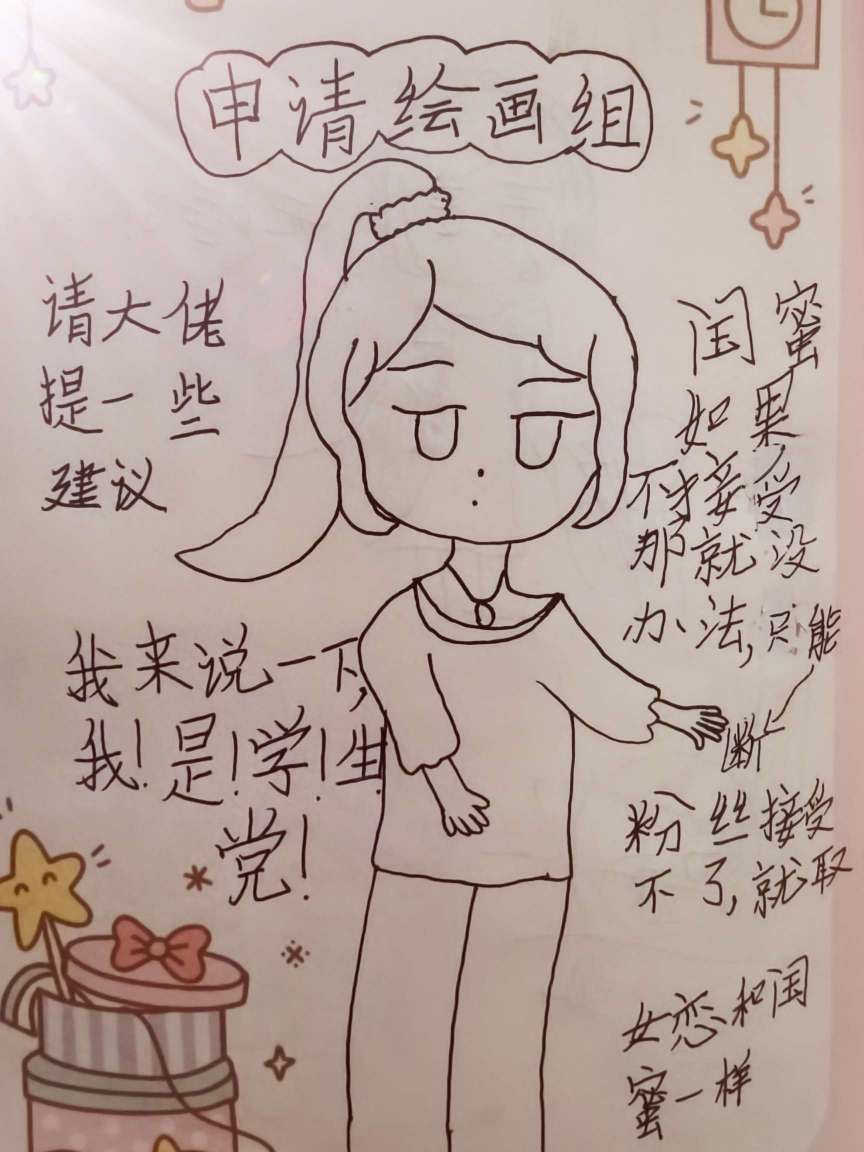 申请绘画组
请大佬
提一些
建议
我来说一下,
我!是!学!生
党!
闺蜜
如果
不接受
那就没
办法,只能
断
粉丝接受
不了,就取
女恋和闺
蜜一样